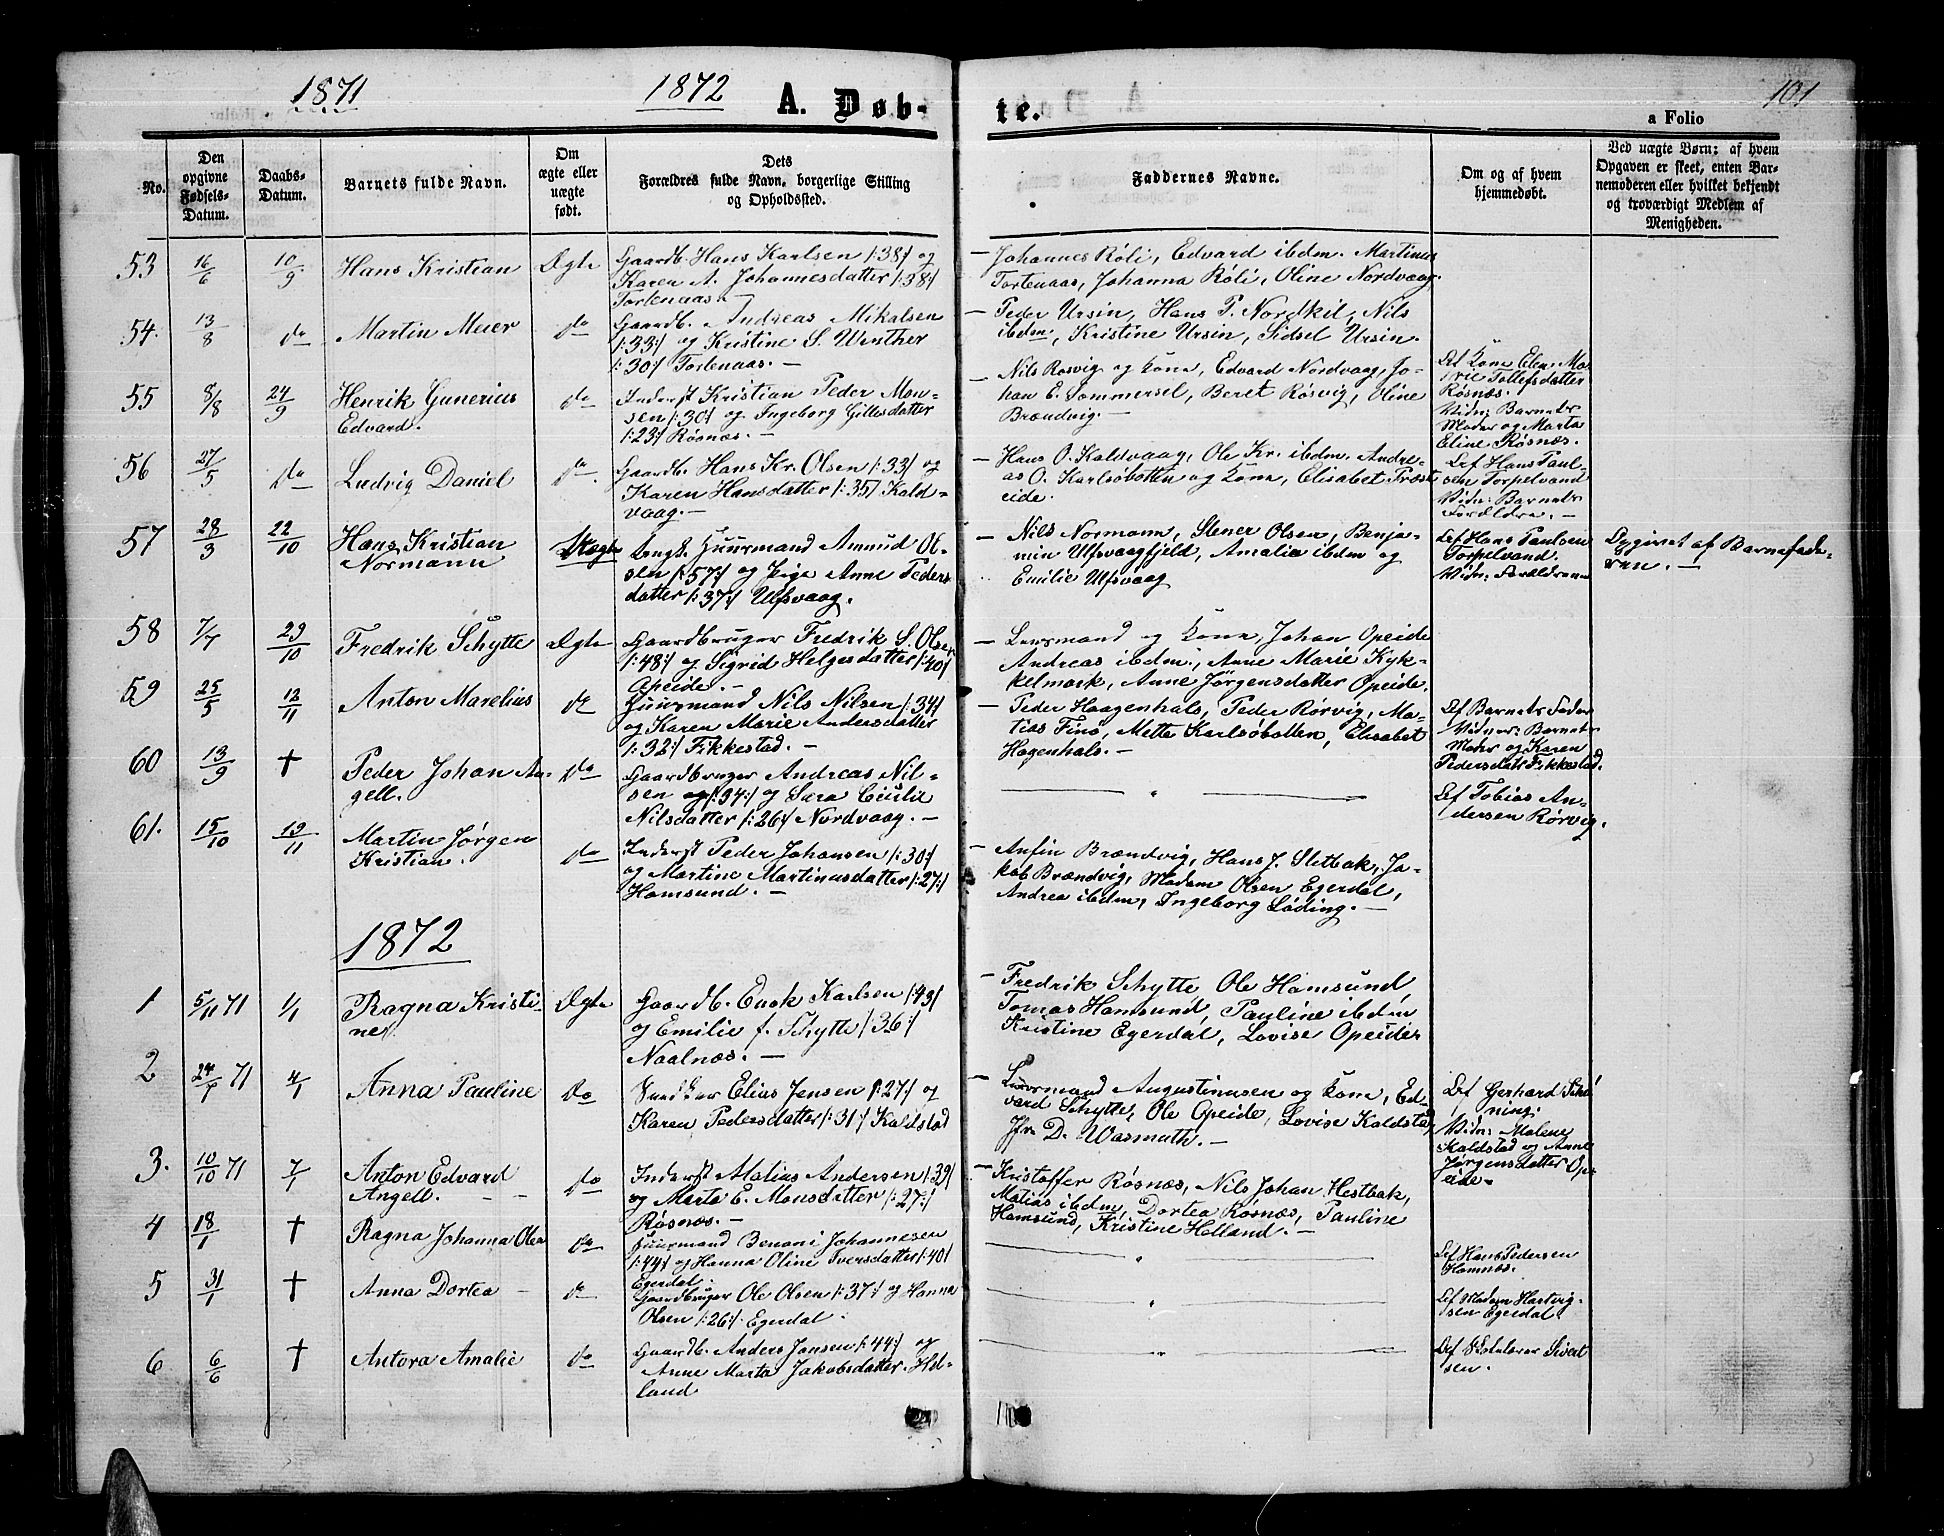 1871
1872
A. Døb-
te.
101
a Folio
No.
Den
opgivne
Fødsels-
Datum.
Daabs-
Datum.
Barnets fulde Navn.
Om
ægte eller
uægte
født.
Dets
Forældres fulde Navn, borgerlige Stilling
og Opholdssted.
Faddernes Navne.
Om og af hvem
hjemmedøbt.
Ved uægte Børn: af hvem
Opgaven er skeet, enten Bar-
nemoderen eller hvilket bekjendt
og troværdigt Medlem af
Menigheden.
53
16/6
10/9
Hans Kristian
Ægte
Gaardb. Hans Karlsen /:38/ og
Karen A. Johannesdatter /:38/
Tortenaas. –
– Johannes Røli, Edvard ibdm. Martinus
Tortenaas, Johanna Røli, Oline Nordvaag.
54.
13/8
do
Martin Meier
do
Gaardb. Andreas Mikalsen
/:33/ og Kristine S. Winther
/:30/ Tortenaas. –
– Peder Ursin, Hans P. Nordkil, Nils
ibdm, Kristine Ursin, Sidsel Ursin.
55
8/8
24/9
Henrik Gunerius
Edvard.
do
Inderst Kristian Peder Mon-
sen /:30/ og Ingeborg Gillesdatter
/:23/ Røsnæs. –
– Nils Rosvig og Kone, Edvard Nordvaag, Jo-
han E. Sommersel, Beret Røsvig, Oline
Brændvig. –
Af Kone Elen Ma-
rie Tollefsdatter
Røsnæs.
Vidn: Barnets
Moder og Marta
Eline Røsnæs.
56
27/5
do
Ludvig Daniel
do.
Gaardb. Hans Kr. Olsen /:33/ og
Karen Hansdatter /:35/ Kald-
vaag. –
– Hans O. Kaldvaag, Ole Kr. ibdm. Andre-
as O. Karlsøbotten og Kone, Elisabet Præst
eide.
Af Hans Paul-
sen Torpelvand
Vidn: Barnets
Forældre. –
57
28/3
22/10
Hans Kristian
Normann
Uægte
Ungk. Huusmand Amund Ol-
sen /:57:/ og Pige Anne Peders
datter /:37:/ Ulfsvaag.
– Nils Normann, Stener Olsen, Benja-
min Ulfsvaagfjeld, Amalia ibdm og
Emilie Ulfsvaag
Af Hans Paulsen
Torpelvand.
Vidn: Forældrene
Opgivet af Barnefade-
ren. –
58
7/7
29/10
Fredrik Schytte
Ægte
Gaardbruger Fredrik S. Olsen
/:48/ og Sigrid Helgesdatter /:40/
Opeide. –
– Lensmand og Kone, Johan Opeide
Andreas ibdm., Anne Marie Kyk-
kelmark, Anne Jørgensdatter Opeide.
59
25/5
12/11
Anton Marelius
do
Huusmand Nils Nilsen /:34/
og Karen Marie Andersdatter
/:32:/ Fikkestad. –
– Peder Haagenhals, Peder Rørvig, Ma-
tias Finø, Mette Karlsøbotten, Elisabet
Hagenhals. –
Af Barnets Fader
Vidner: Barnets
Mohr og Karen
Pedersdatt Fikkestad.
60
13/9
†
Peder Johan An-
gell.
do
Gaardbruger Andreas Nil-
sen /:34:/ og Sara Cecilie
Nilsdatter /:26/ Nordvaag. –
"
Af Tobias An-
dersen Rørvig.
61.
15/10
19/11
Martin Jørgen
Kristian.
do
Inderst Peder Johansen /:30:/
og Martine Martinusdatter /:27:/
Hamsund. –
– Anfin Brændvig, Hans J. Sletbak, Ja-
kob Brændvig, Madam Olsen Egerdal,
Andrea ibdm, Ingeborg Løding. –
1872
1
5/11 71
1/1
Ragna Kristi-
ne
Ægte
Gaardb. Enok Karlsen /:43/
og Emilie f. Schytte /:36:/
Naalnæs. –
– Fredrik Schytte Ole Hamsund
Tomas Hamsund, Pauline ibdm
Kristine Egerdal, Lovise Opeide.
2
71
4/1
Anna Pauline
do
Elias Jensen /:27:/ og
Karen Pedersdatter /:31:/ Kaldstad
– Lensmand Augustinusen og Kone, Ed-
vard Schytte, Ole Opeide, Lovise Kaldstad,
Jfr. D. Wasmuth. –
Af Gerhard Schø-
ning.
Vidn: Malene
Kaldstad og Anne
Jørgensdatter Op-
eide –
3.
10/10 71
7/1
Anton Edvard
Angell.
do
Inderst Matias Andersen /:39/
og Marta E. Monsdatter /:27:/
Røsnæs. –
– Kristoffer Røsnæs, Nils Johan Hestbak,
Matias ibdm, Dortea Røsnæs, Pauline
Hamsund, Kristine Helland. –
4
18/1
†
Ragna Johanna Olea
do
Huusmand Benoni Johannesen
/:44/ og Hanna Oline Iversdatter /:40/
Egerdal.
"
Af Hans Pedersen
Hamnæs.
5
31/1
†
Anna Dortea –
do
Gaardbruger Ole Olsen /:37:/ og Hanna
Olsen /:26:/ Egerdal.
"
Af Madam Hartvig-
sen Egerdal.
6
6/6
†
Antora Amalie
do
Gaardb. Anders Jansen /:44:/ og
Anne Marta Jakobsdatter. Hel-
land
"
Af Skolelærer Sivert
sen.